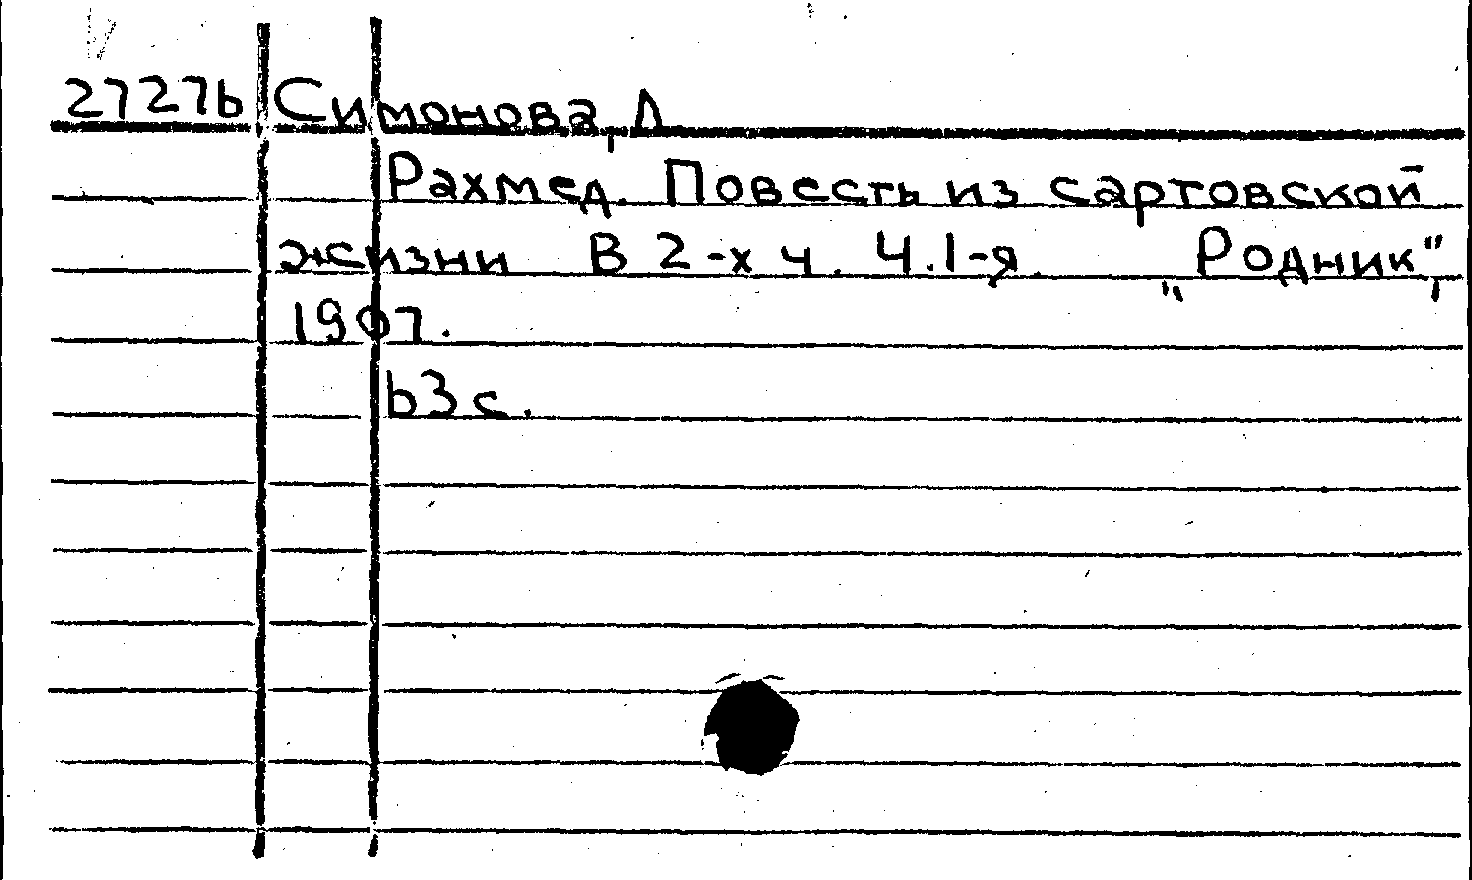 27276 Симонова, Л
Рахмед. Повесть из сартовской
жизни В 2-х ч. Ч.1-я. „Родник",
1907.
63 с.